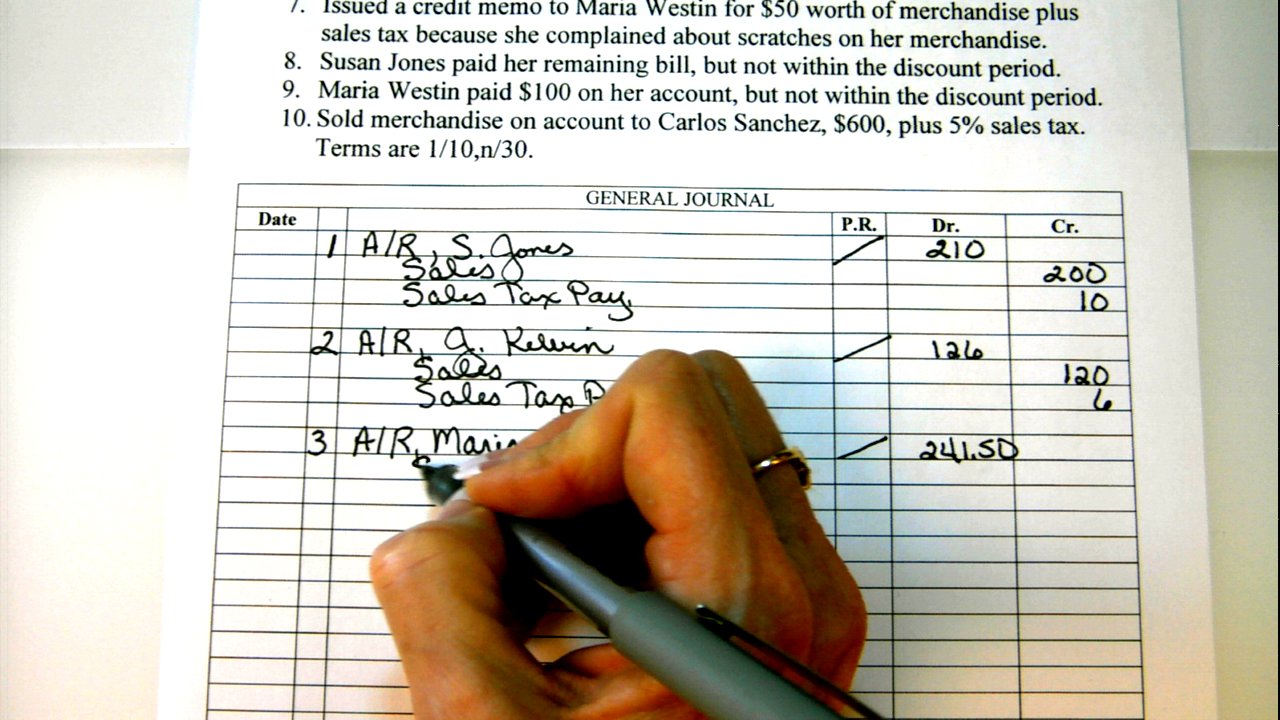 7. Issued a credit memo to Maria Westin for $50 worth of merchandise plus
sales tax because she complained about scratches on her merchandise.
8. Susan Jones paid her remaining bill, but not within the discount period.
9. Maria Westin paid $100 on her account, but not within the discount period.
10. Sold merchandise on account to Carlos Sanchez, $600, plus 5% sales tax.
Terms are 1/10,n/30.
GENERAL JOURNAL
Date P.R. Dr. Cr.
1 A/R, S. Jones 210
Sales 200
Sales Tax Pay. 10
2 A/R, A. Kelvin 126
Sales 120
Sales Tax P 6
3 A/R, Maria 241.50
S